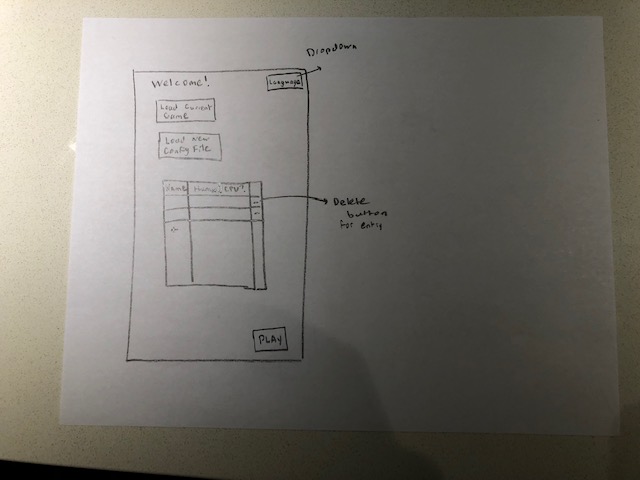 Dropdown
Welcome!
Language
Load Current
Game
Load new
Config File
Name
Human/CPU?
-
-
+
Delete
button
for entry
PLAY